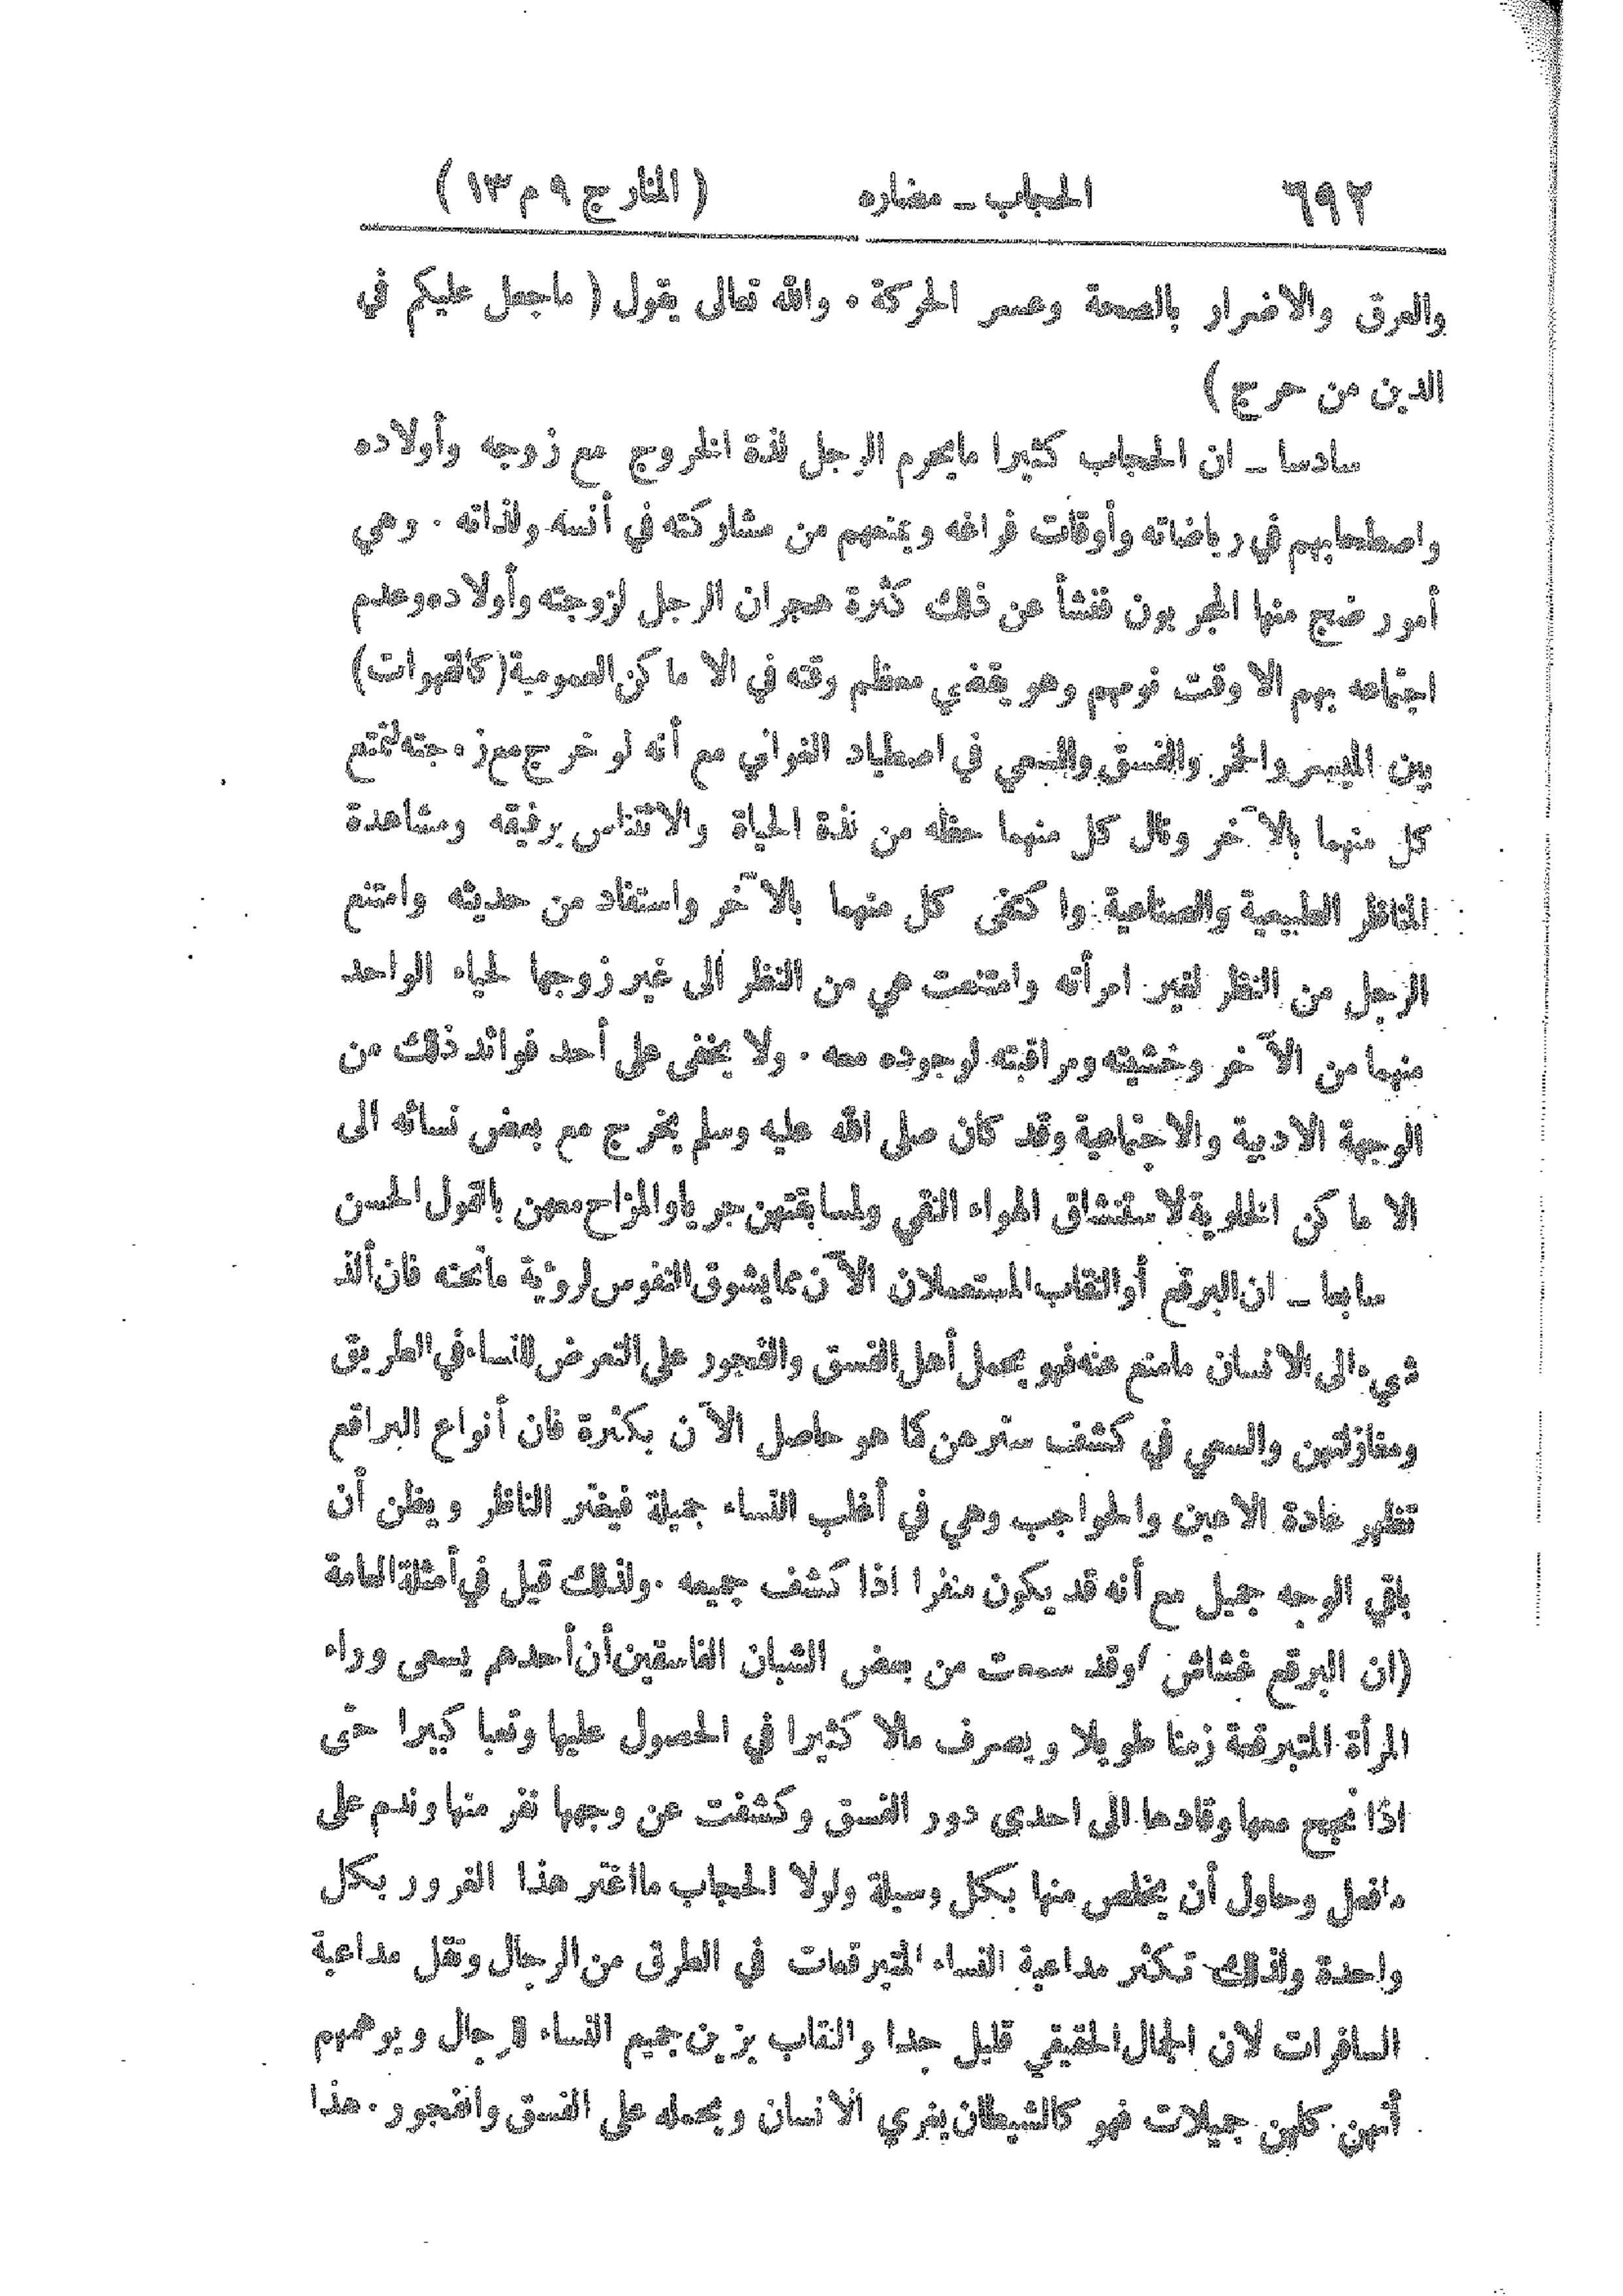 ٦٩٢ الحجاب ــ مضاره ( المنار ج ٩ م ١٣ )
والعرق والاضرار بالصحة وعسر الحركة . والله تعالى يقول ( ماجعل عليكم في
الدين من حرج )
سادسا ــ ان الحجاب كثيرا مايحرم الرجل لذة الخروج مع زوجه وأولاده
واصطحابهم في رياضاته وأوقات فراغه ويمنعهم من مشاركته في أنسه ولذاته . وهي
أمور ضج منها المجربون فنشأ عن ذلك كثرة هجران الرجل لزوجته وأولاده وعدم
اجتماعه بهم الا وقت نومهم وهو يقضي معظم وقته في الاماكن العمومية (كالقهوات)
بين الميسر والخمر والفسق والسعي في اصطياد الغواني مع أنه لو خرج مع زوجته لتمتع
كل منهما بالآخر ونال كل منهما حظه من لذة الحياة والائتناس برفيقه ومشاهدة
المناظر الطبيعية والصناعية واكتفى كل منهما بالآخر واستفاد من حديثه وامتنع
الرجل من النظر لغير امرأته وامتنعت هي من النظر الى غير زوجها لحياء الواحد
منهما من الآخر وخشيته ومراقبته لوجوده معه . ولا يخفى على أحد فوائد ذلك من
الوجهة الادبية والاجتماعية وقد كان صلى الله عليه وسلم يخرج مع بعض نسائه الى
الاماكن الخلوية لاستنشاق الهواء النقي ولمسابقتهن جريا والمزاح معهن بالقول الحسن
سابعا ــ ان البرقع أو النقاب المستعملان الآن مما يشوق النفوس لرؤية ماتحته فان ألذ
شيء الى الانسان مامنع عنه فهو يحمل أهل الفسق والفجور على التعرض للنساء في الطريق
ومغازلتهن والسعي في كشف سترهن كما هو حاصل الآن بكثرة فان أنواع البراقع
تظهر عادة الاعين والحواجب وهي في أغلب النساء جميلة فيغتر الناظر ويظن أن
باقي الوجه جميل مع أنه قد يكون منفرا اذا كشف جميعه . ولذلك قيل في أمثلة العامة
(ان البرقع غشاش) وقد سمعت من بعض الشبان الفاسقين أن أحدهم يسعى وراء
المرأة المتبرقعة زمنا طويلا ويصرف مالا كثيرا في الحصول عليها وتعبا كبيرا حتى
اذا نجح معها وقادها الى احدى دور الفسق وكشفت عن وجهها نفر منها وندم على
مافعل وحاول أن يخلص منها بكل وسيلة ولولا الحجاب مااغتر هذا الغرور بكل
واحدة ولذلك تكثر مداعبة النساء المتبرقعات في الطرق من الرجال وتقل مداعبة
السافرات لان الجمال الحقيقي قليل جدا والنقاب يزين جميع النساء للرجال ويوهمهم
أنهن كلهن جميلات فهو كالشيطان يغري الانسان ويحمله على الفسق والفجور . هذا